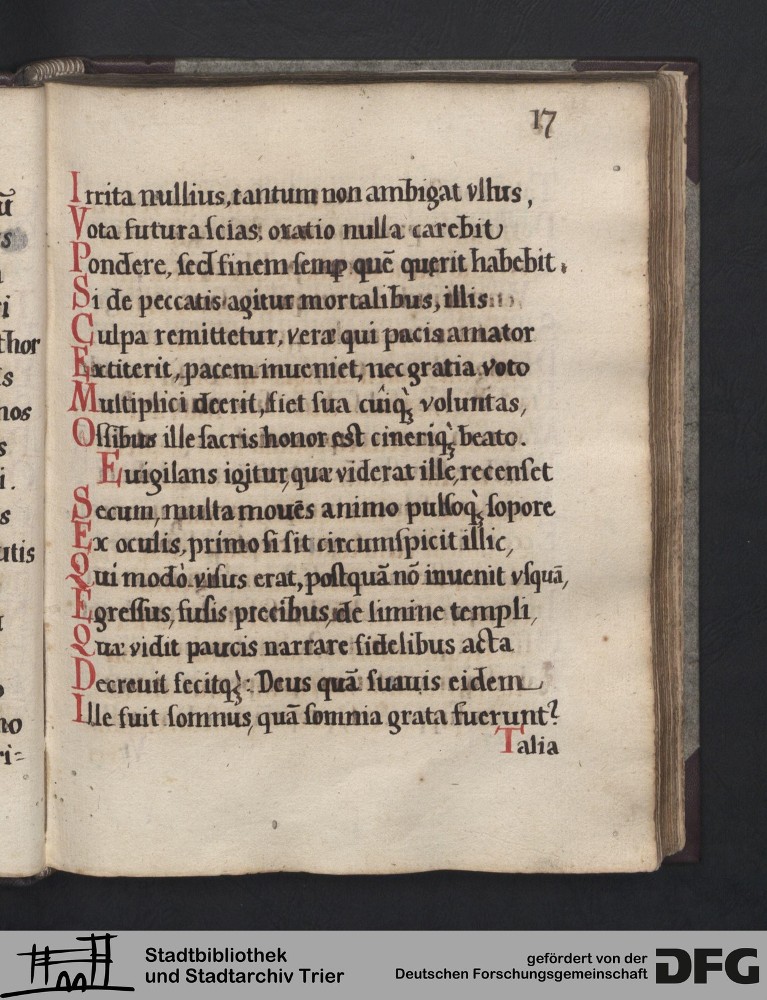 17
ũ
s
ri
thor
is
nos
s
i.
s
utis
no
ri=
Irrita nullius, tantum non ambigat vllus,
Vota futura scias. oratio nulla carebit
Pondere, sed finem semp quẽ querit habebit.
Si de peccatis agitur mortalibus, illis
Culpa remittetur, veræ qui pacis amator
Extiterit, pacem inueniet, nec gratia voto
Multiplici deerit, fiet sua cuiq; voluntas,
Ossibus ille sacris honor est cineriq; beato.
Euigilans igitur, quæ viderat ille, recenset
Secum, multa mouẽs animo pulsoq; sopore
Ex oculis, primo si sit circumspicit illic,
Qui modò visus erat, postquã nõ inuenit vsquã,
Egressus, fusis precibus, de limine templi,
Quæ vidit paucis narrare fidelibus acta
Decreuit fecitq;: Deus quã suauis eidem
Ille fuit somnus, quã somnia grata fuerunt?
Talia
Stadtbibliothek
und Stadtarchiv Trier
gefördert von der
Deutschen Forschungsgemeinschaft
DFG